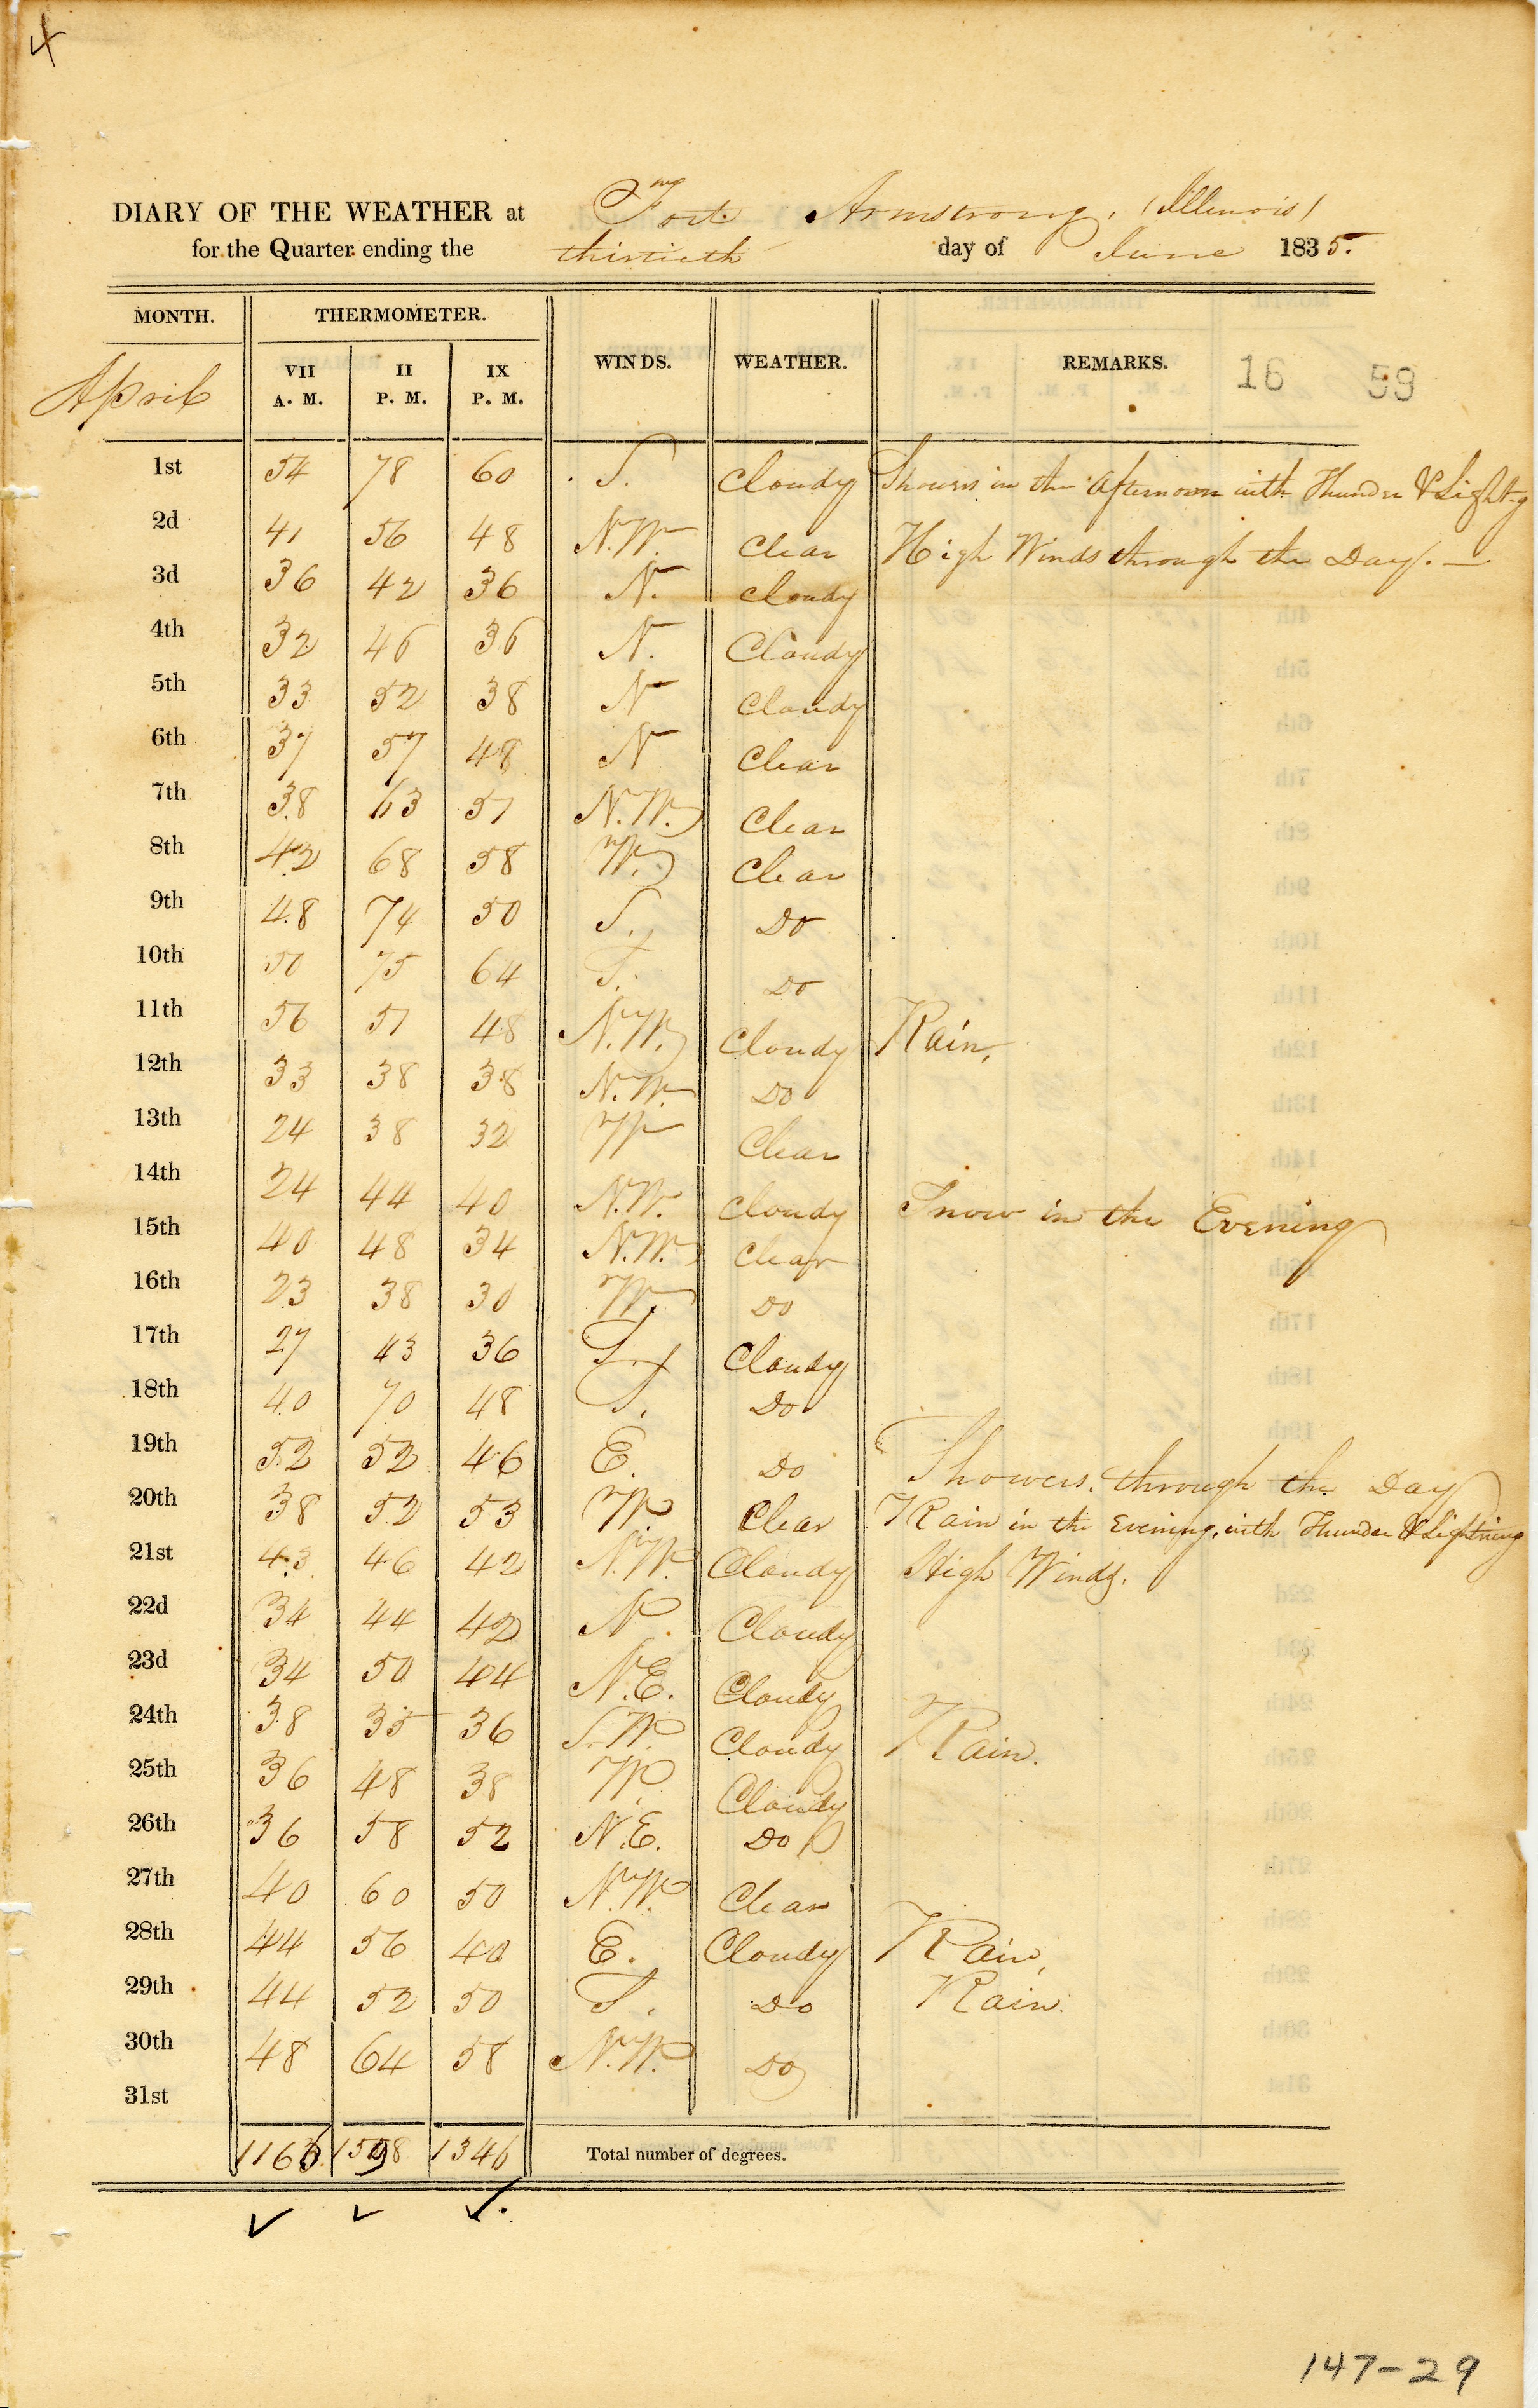 4
DIARY OF THE WEATHER at Fort Armstrong, (Illinois)
for the Quarter ending the thirtieth day of June 1835.
MONTH. THERMOMETER. WINDS. WEATHER. REMARKS. 16 59
April VII A. M. II P. M. IX P. M.
1st 54 78 60 S. Cloudy Showers in the afternoon with Thunder & Light-g
2d 41 56 48 N.W. Clear High Winds through the Day. —
3d 36 42 36 N. Cloudy
4th 32 46 36 N. Cloudy
5th 33 52 38 N Cloudy
6th 37 57 48 N Clear
7th 38 63 51 N.W. Clear
8th 42 68 58 W. Clear
9th 48 74 50 S. Do
10th 50 75 64 S. Do
11th 56 51 48 N.W. Cloudy Rain,
12th 33 38 38 N.W. Do
13th 24 38 32 W Clear
14th 24 44 40 N.W. Cloudy Snow in the Evening
15th 40 48 34 N.W. Clear
16th 23 38 30 W. Do
17th 27 43 36 S. Cloudy
18th 40 70 48 S. Do
19th 52 52 46 E. Do Showers through the Day
20th 38 52 53 W Clear Rain in the Evening, with Thunder & Lightning
21st 43 46 42 N.W. Cloudy High Winds.
22d 34 44 42 N. Cloudy
23d 34 50 44 N.E. Cloudy
24th 38 35 36 S.W. Cloudy Rain.
25th 36 48 38 W. Cloudy
26th 36 58 52 N.E. Do
27th 40 60 50 N.W. Clear
28th 44 56 40 E. Cloudy Rain,
29th 44 52 50 S. Do Rain.
30th 48 64 58 N.W. Do
31st
1598 1346 Total number of degrees.
147-29